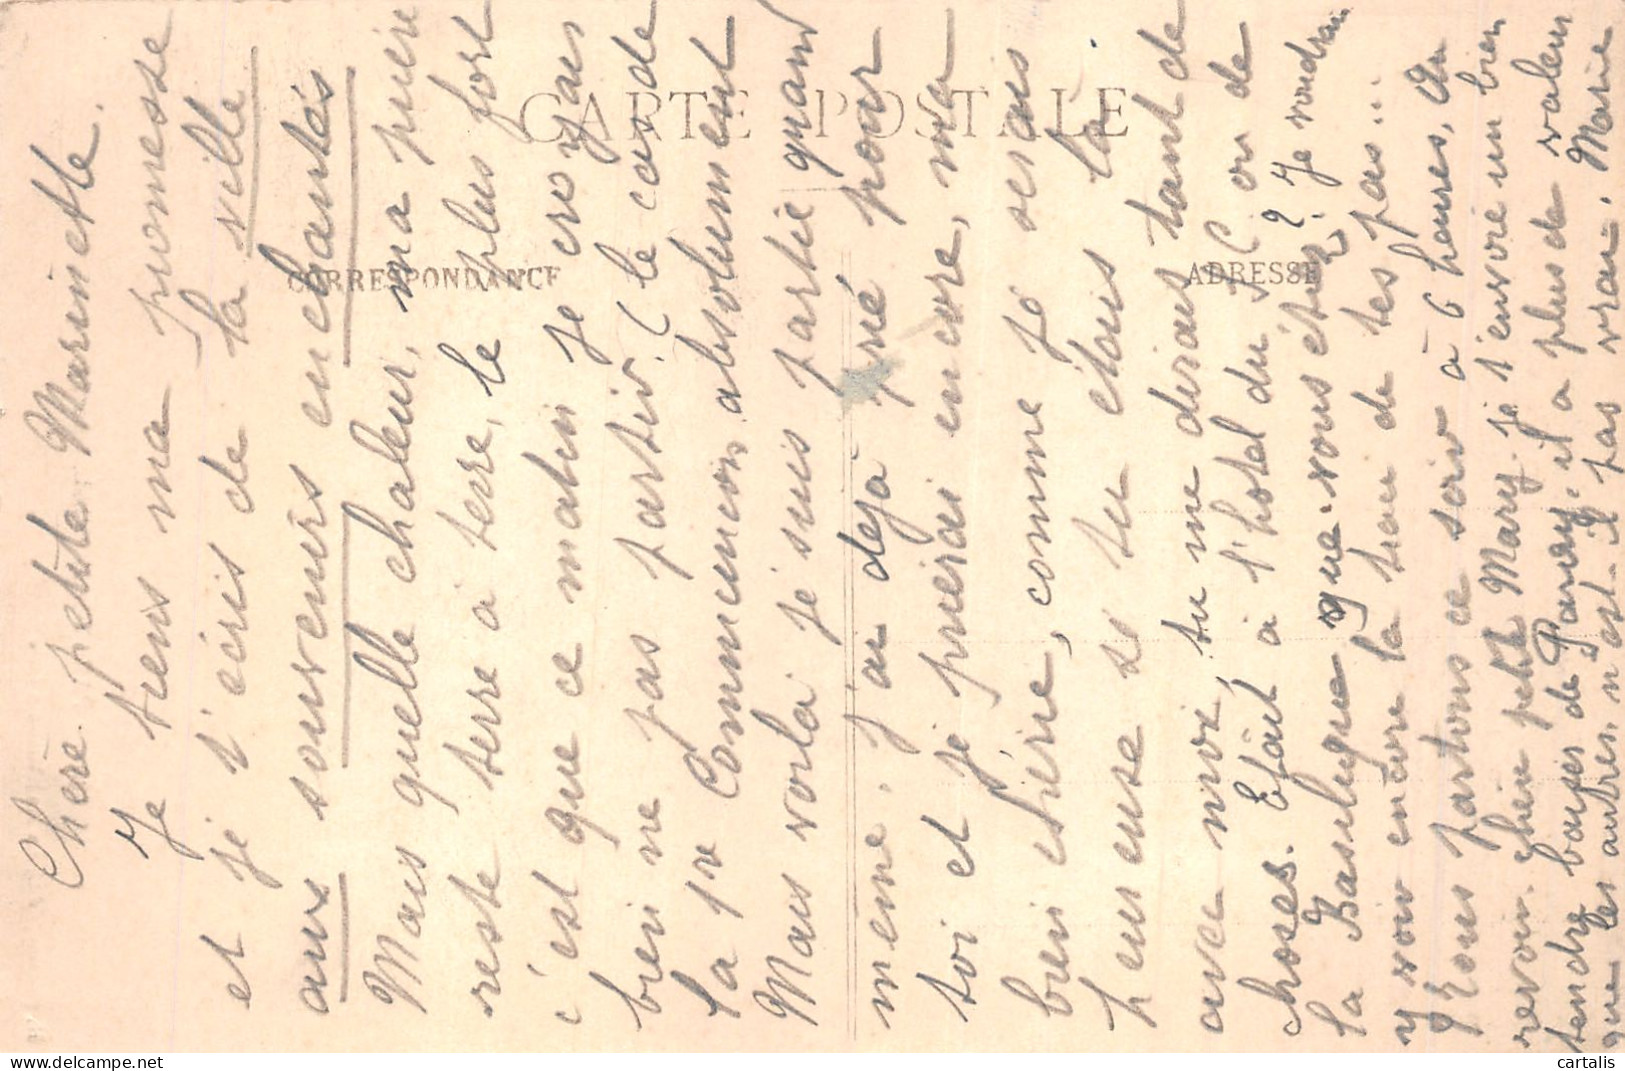 CARTE POSTALE
CORRESPONDANCE
ADRESSE
Chère petite Marinette.
Je tiens ma promesse
et je t'écris de la ville
aux souvenirs enchantés
Mais quelle chaleur, ma pierre
reste terre à terre, le plus fort
c'est que ce matin je croyais
bien ne pas partir. (le car de
la Commencion, absolument
Mais voilà je suis partie quand
même. j'ai déjà prié pour
toi et je prierai encore, ma
bien chérie, comme je serais
heureuse si tu étais là.
avec moi, tu me dirais tant de
choses. Était à l'hotel du J C ou de
la Basilique que vous étiez? Je voudrais
y voir encore la trace de tes pas...
Nous partons ce soir à 6 heures. Au
revoir, chère petite Mary. je t'envoie un bien
tendre baiser de Paray, il a plus de valeur
que les autres, n'est-il pas vrai. Marie
cartalis
cartalis.com